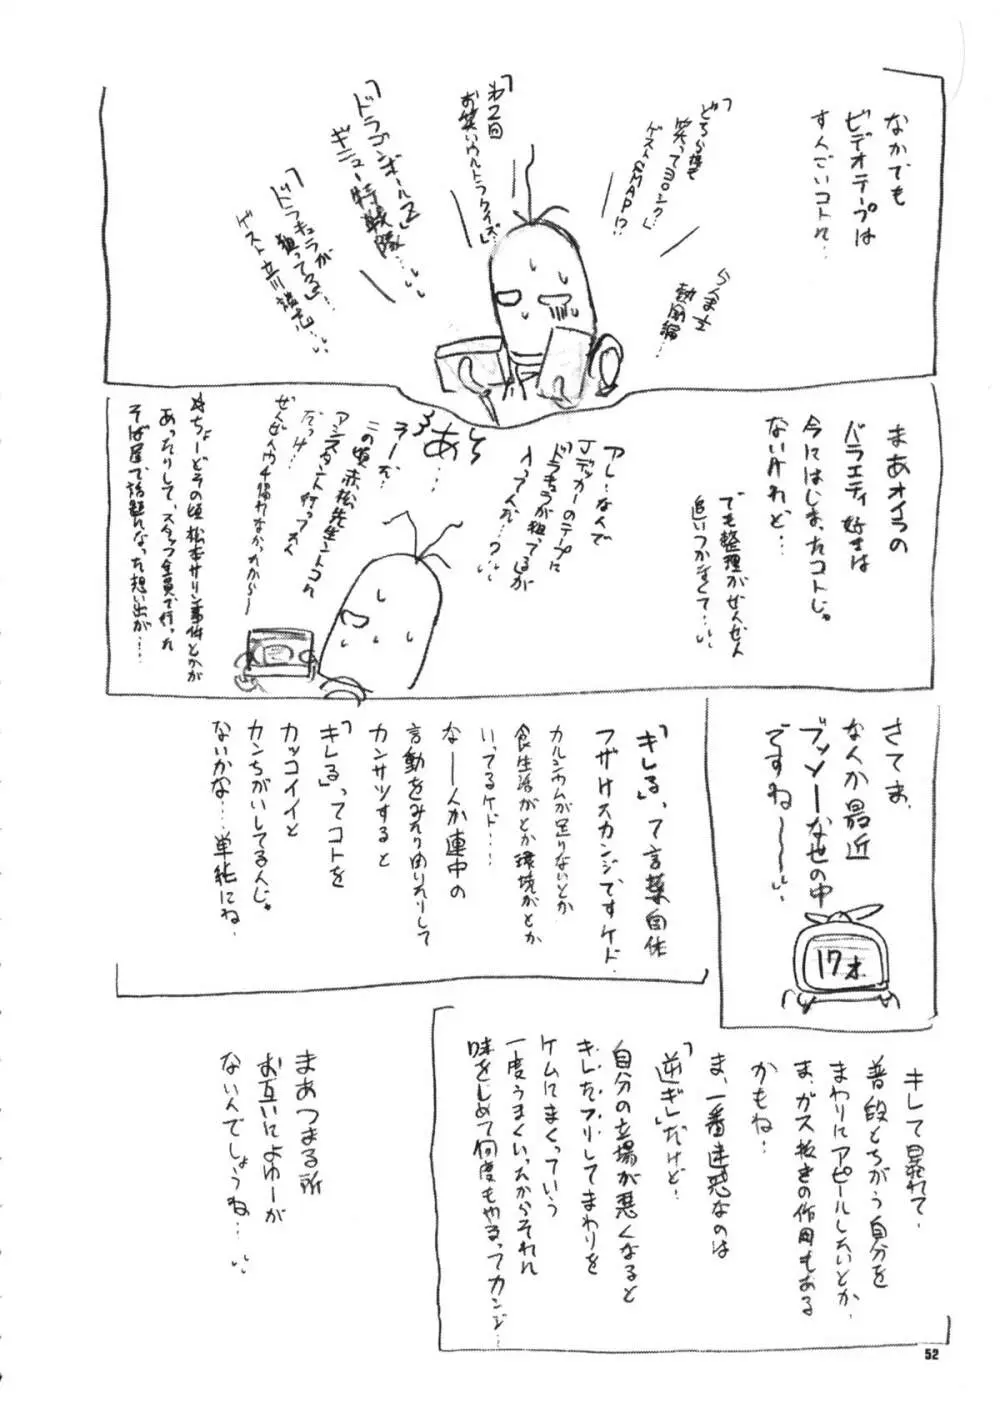 なかでも
ビデオテープは
すんごいコトに…
らんま½
熱闘編…
「どちら様も
笑ってヨロシク」
ゲストSMAP!?
「第2回
お笑いウルトラクイズ」
「ドラゴンボールZ」
ギニュー特戦隊…
「ドラキュラが
狙ってる」…
ゲスト立川談志…
まあオイラの
バラエティ好きは
今にはじまったコトじゃ
ないけれど…
でも整理がぜんぜん
追いつかなくて…
アレ…なんで
Jデッカーのテープに
「ドラキュラが狙ってる」が
入ってんだ…?
あ…
そっ
この頃赤松先生ントコに
アシスタント行ってたん
だっけ…
ぜんぜんウチ帰れなかったから〜
ちょーどその頃松本サリン事件とかが
あったりして、スタッフ全員で行った
そば屋で話題になった想い出が…
さてま、
なんか最近
ブッソーな世の中
ですね〜
17才
「キレる」って言葉自体
フザけたカンジですケド、
カルシウムが足りないとか
食生活がとか環境がとか
いってるケド…
なーんか連中の
言動をみたりきいたりして
カンサツすると
「キレる」ってコトを
カッコイイと
カンちがいしてるんじゃ
ないかな…単純にね。
キレて暴れて、
普段とちがう自分を
まわりにアピールしたいとか、
ま、ガス抜きの作用もある
かもね…
ま、一番迷惑なのは
「逆ギレ」だけど…
自分の立場が悪くなると
キレたフリしてまわりを
ケムにまくっていう
一度うまくいったからそれに
味をしめて何度もやるってカンジ…
まあつまる所
お互いによゆーが
ないんでしょうね…
52